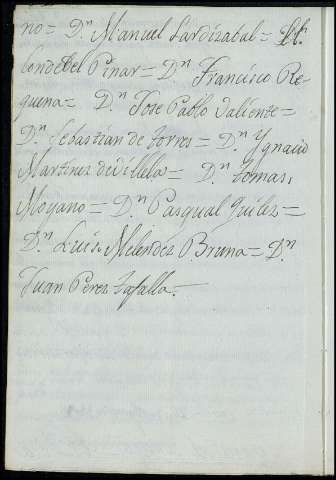 no = D.n Manuel Lardizabal = El
Conde del Pinar = D.n Francisco Re-
quena = D.n Jose Pablo Valiente =
D.n Sebastian de torres = D.n Ygnacio
Martinez de Villela = D.n tomas,
Moyano = D.n Pasqual Quilez =
D.n Luis Melendez Bruna = D.n
Juan Perez tafalla =